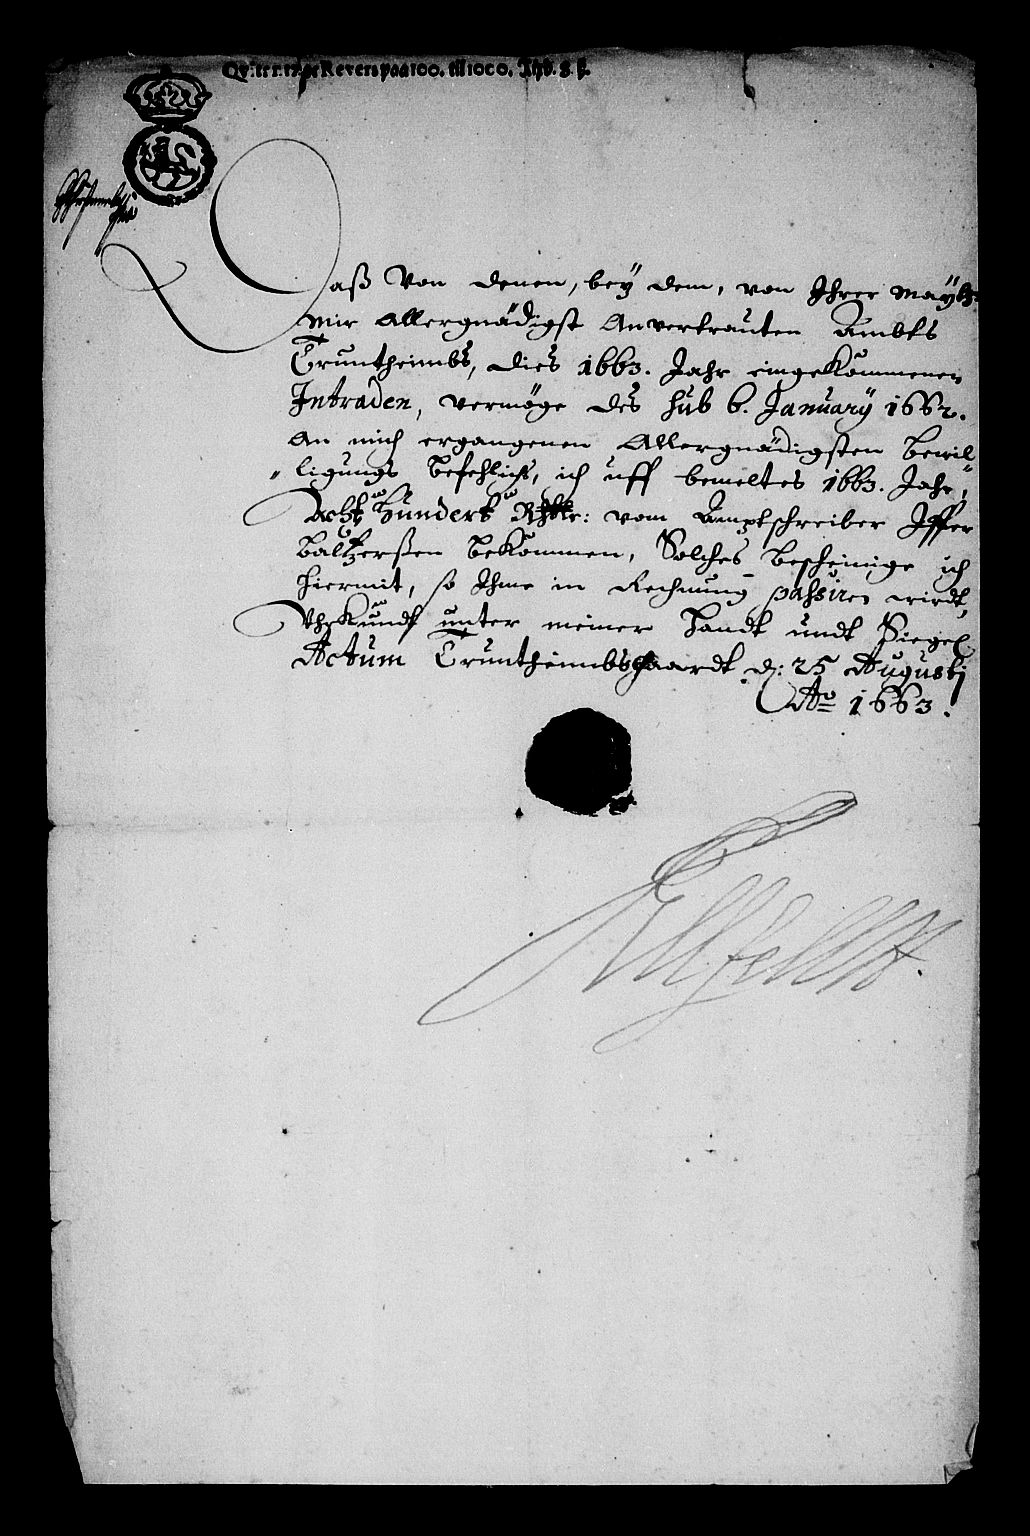 Qvitterer Revers paa 100. til 1000. Thb. 8 ß.
Daß Von denen, bey dem, von Ihrer Maytt:
mir Allergnädigst Anvertrauten Ambts
Truntheimbs, dies 1663. Jahr eingekommenen
Intraden, vermöge des sub 6. January 1662.
An mich ergangenen Allergnädigsten bewil
ligungs befehlichs, ich uff bemeltes 1663. Jahr,
Acht Hundert Rthlr: vom Amptschreiber Iffer
Baltzerßen bekommen, Solches bescheinige ich
hiermit, so Ihme in Rechnung passiren wirdt,
Uhrkundt unter meiner Handt undt Siegel
Actum Truntheimbs gaardt d: 25 Augusti
Ao 1663.